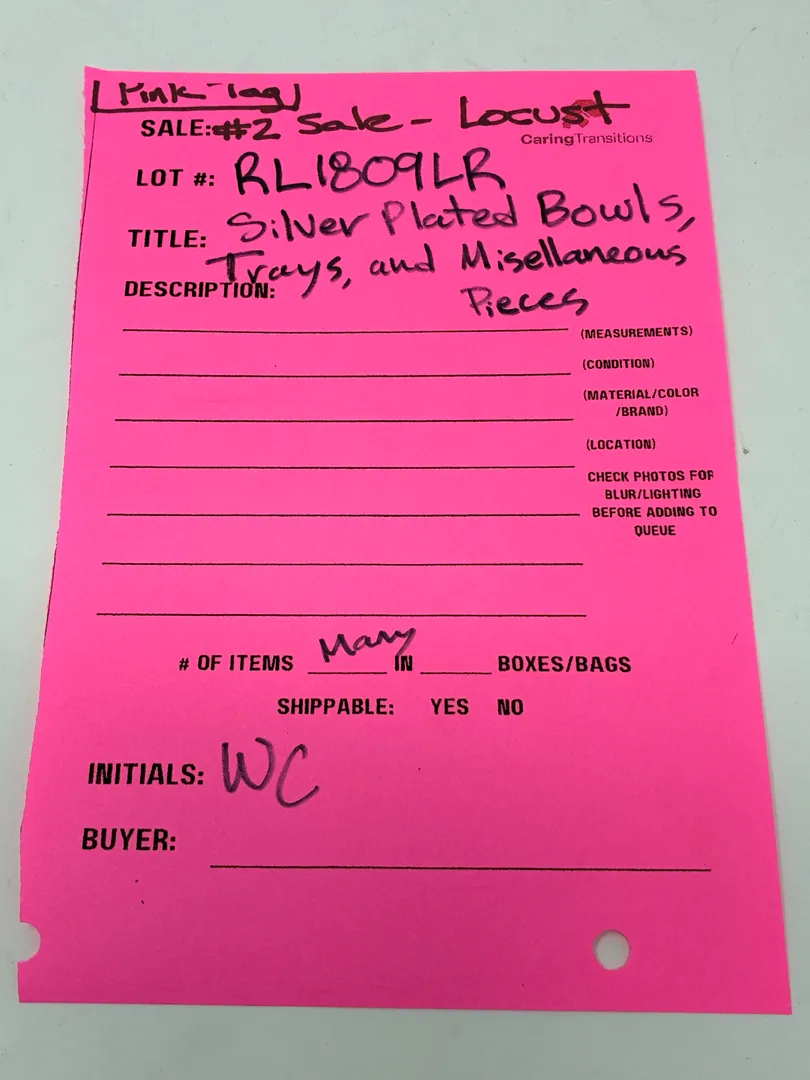 Pink Tag
SALE: #2 Sale - Locust
CaringTransitions
LOT #: RL1809LR
TITLE: Silver Plated Bowls,
Trays, and Misellaneous
Pieces
DESCRIPTION:
(MEASUREMENTS)
(CONDITION)
(MATERIAL/COLOR
/BRAND)
(LOCATION)
CHECK PHOTOS FOR
BLUR/LIGHTING
BEFORE ADDING TO
QUEUE
# OF ITEMS Many IN BOXES/BAGS
SHIPPABLE: YES NO
INITIALS: WC
BUYER: